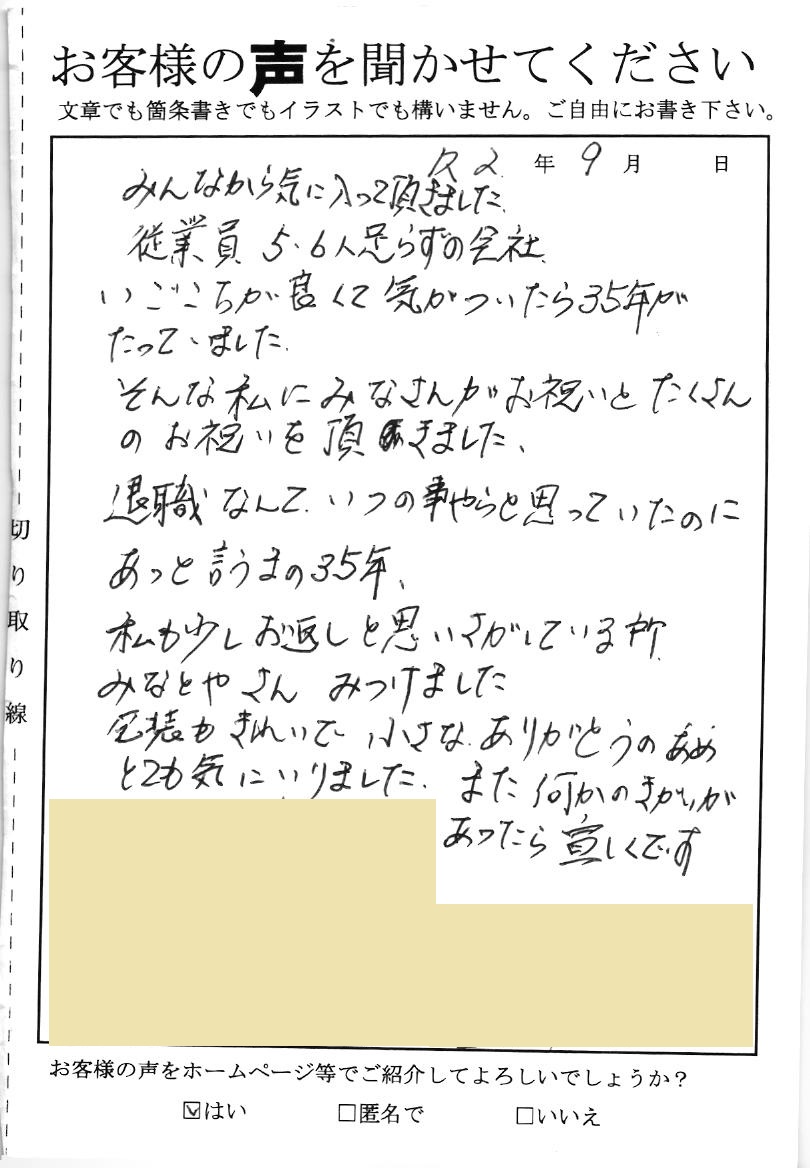 お客様の声を聞かせてください
文章でも箇条書きでもイラストでも構いません。ご自由にお書き下さい。
R2年9月 日
みんなから気に入って頂きました。
従業員 5.6人足らずの会社
いごこちが良くて気がついたら35年が
たっていました。
そんな私にみなさんがお祝いとたくさん
のお祝いを頂きました、
退職なんて.いつの事やらと思っていたのに
あっと言うまの35年、
私も少しお返しと思いさがしている所
みなとやさん みつけました
包装もきれいで、小さな ありがとうのあめ
とても気にいりました. また何かのきかいが
あったら宜しくです
切り取り線
お客様の声をホームページ等でご紹介してよろしいでしょうか？
☑はい □匿名で □いいえ